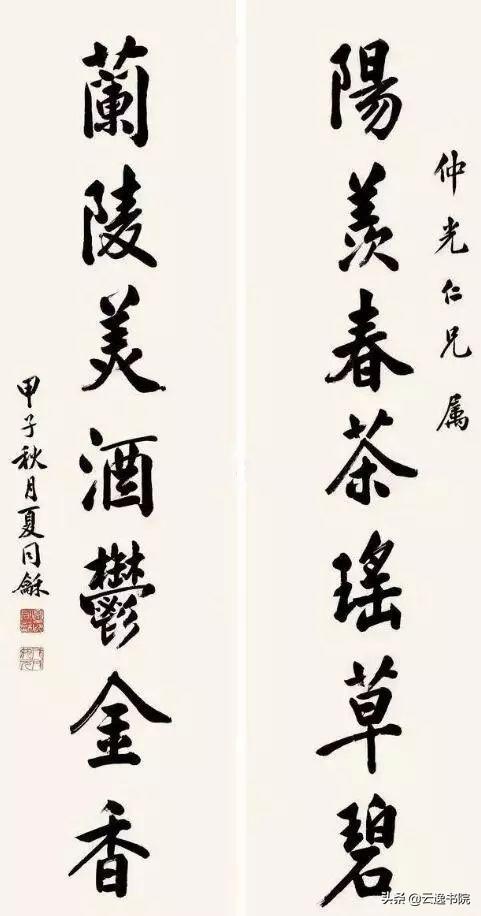 仲光仁兄属
陽羨春茶瑤草碧
蘭陵美酒鬱金香
甲子秋月夏同龢
头条 @云逸书院